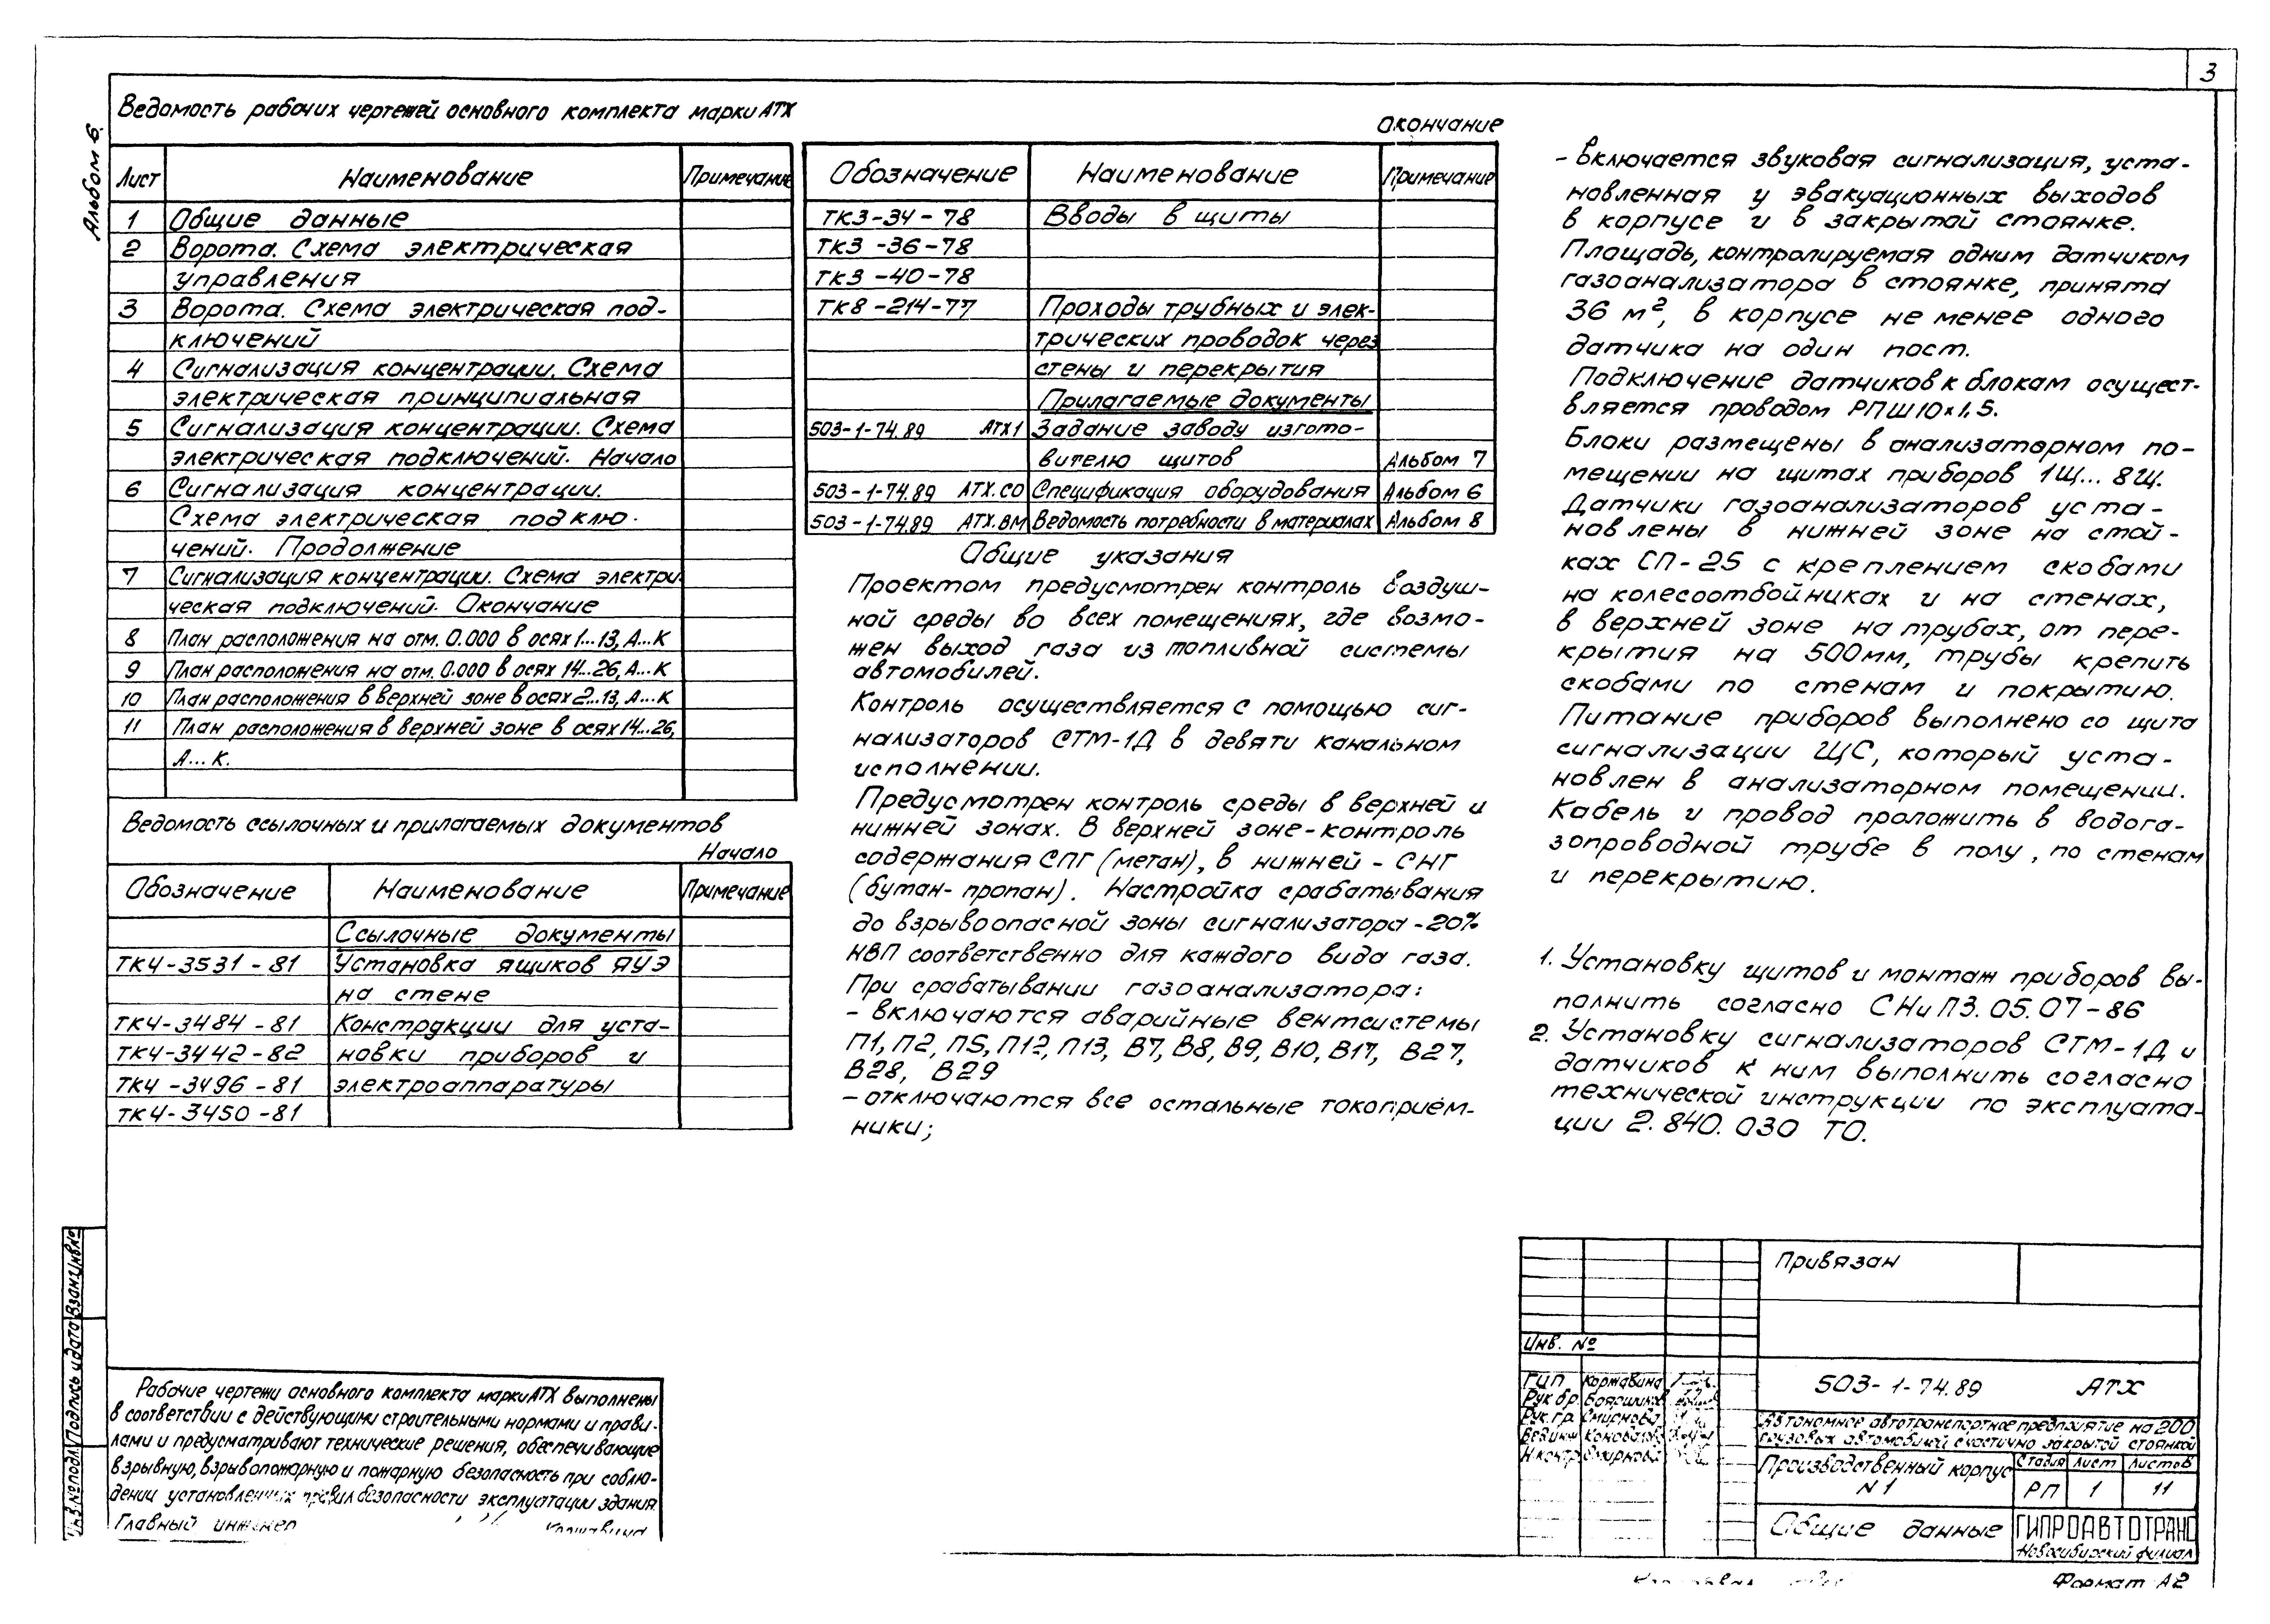 3
Альбом 6.
Ведомость рабочих чертежей основного комплекта марки АТХ
Лист Наименование Примечание
1 Общие данные
2 Ворота. Схема электрическая
управления
3 Ворота. Схема электрическая под-
ключений
4 Сигнализация концентрации. Схема
электрическая принципиальная
5 Сигнализация концентрации. Схема
электрическая подключений. Начало
6 Сигнализация концентрации.
Схема электрическая подклю-
чений. Продолжение
7 Сигнализация концентрации. Схема электри
ческая подключений. Окончание
8 План расположения на отм. 0.000 в осях 1...13, А...К
9 План расположения на отм. 0.000 в осях 14...26, А...К
10 План расположения в верхней зоне в осях 2...13, А...К
11 План расположения в верхней зоне в осях 14...26,
А...К.
Ведомость ссылочных и прилагаемых документов
Начало
Обозначение Наименование Примечание
Ссылочные документы
ТК4-3531-81 Установка ящиков ЯУЭ
на стене
ТК4-3484-81 Конструкции для уста-
ТК4-3442-82 новки приборов и
ТК4-3496-81 электроаппаратуры
ТК4-3450-81
Окончание
Обозначение Наименование Примечание
ТК3-34-78 Вводы в щиты
ТК3-36-78
ТК3-40-78
ТК8-214-77 Проходы трубных и элек-
трических проводок через
стены и перекрытия
Прилагаемые документы
503-1-74.89 АТХ1 Задание заводу изгото-
вителю щитов Альбом 7
503-1-74.89 АТХ.СО Спецификация оборудования Альбом 6
503-1-74.89 АТХ.ВМ Ведомость потребности в материалах Альбом 8
Общие указания
Проектом предусмотрен контроль воздуш-
ной среды во всех помещениях, где возмо-
жен выход газа из топливной системы
автомобилей.
Контроль осуществляется с помощью сиг-
нализаторов СТМ-1Д в девяти канальном
исполнении.
Предусмотрен контроль среды в верхней и
нижней зонах. В верхней зоне-контроль
содержания СПГ (метан), в нижней - СНГ
(бутан-пропан). Настройка срабатывания
до взрывоопасной зоны сигнализатора-20%
НВП соответственно для каждого вида газа.
При срабатывании газоанализатора:
- включаются аварийные вентсистемы
П1, П2, П5, П12, П13, В7, В8, В9, В10, В17, В27,
В28, В29
- отключаются все остальные токоприём-
ники;
- включается звуковая сигнализация, уста-
новленная у эвакуационных выходов
в корпусе и в закрытой стоянке.
Площадь, контролируемая одним датчиком
газоанализатора в стоянке, принята
36 м², в корпусе не менее одного
датчика на один пост.
Подключение датчиков к блокам осущест-
вляется проводом РПШ 10×1,5.
Блоки размещены в анализаторном по-
мещении на щитах приборов 1Щ... 8Щ.
Датчики газоанализаторов уста-
новлены в нижней зоне на стой-
ках СП-25 с креплением скобами
на колесоотбойниках и на стенах,
в верхней зоне на трубах, от пере-
крытия на 500мм, трубы крепить
скобами по стенам и покрытию.
Питание приборов выполнено со щита
сигнализации ЩС, который уста-
новлен в анализаторном помещении.
Кабель и провод проложить в водога-
зопроводной трубе в полу, по стенам
и перекрытию.
1. Установку щитов и монтаж приборов вы-
полнить согласно СНиП3.05.07-86
2. Установку сигнализаторов СТМ-1Д и
датчиков к ним выполнить согласно
технической инструкции по эксплуата-
ции 2.840.030 ТО.
Инв.№подл. Подпись и дата Взам.инв.№
Рабочие чертежи основного комплекта марки АТХ выполнены
в соответствии с действующими строительными нормами и прави-
лами и предусматривают технические решения, обеспечивающие
взрывную, взрывопожарную и пожарную безопасность при соблю-
дении установленных правил безопасности эксплуатации здания.
Главный инженер Коржавина
Привязан
Инв. №
ГИП Коржавина
Рук.бр.
Рук.гр. Смирнова
Вед.инж.
Н.контр. Смирнова
503-1-74.89 АТХ
Автономное автотранспортное предприятие на 200
грузовых автомобилей с частично закрытой стоянкой
Производственный корпус
N1
Стадия Лист Листов
РП 1 11
Общие данные
ГИПРОАВТОТРАНС
Новосибирский филиал
Формат А2